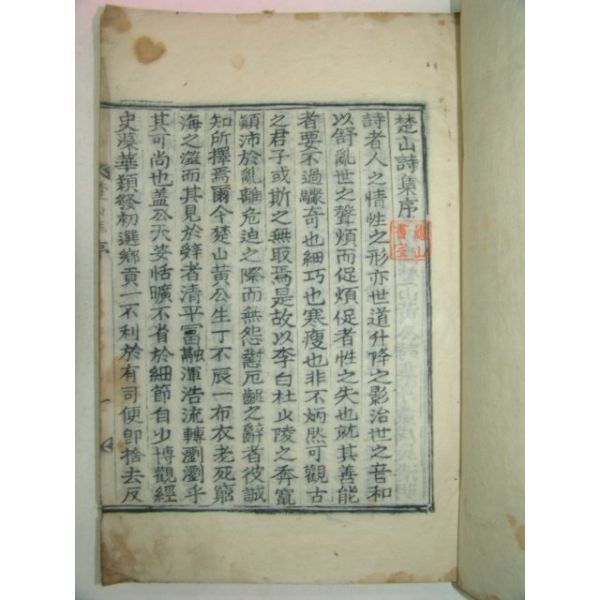 楚山詩集序
詩者人之情性之形亦世道升降之影治世之音和
以舒亂世之聲煩而促煩促者性之失也就其善能
者要不過驟奇也細巧也寒瘦也非不炳然可觀古
之君子或斯之無取焉是故以李白杜少陵之奔竄
顚沛於亂離危迫之際而無怨懟厄齪之辭者彼誠
知所擇焉爾今楚山黃公生丁不辰一布衣老死窮
海之澨而其見於辭者清平冨融渾浩流轉瀏瀏乎
其可尚也盖公天安恬曠不省於細節自少博觀經
史藻華穎發初選鄉貢一不利於有司便卽捨去反